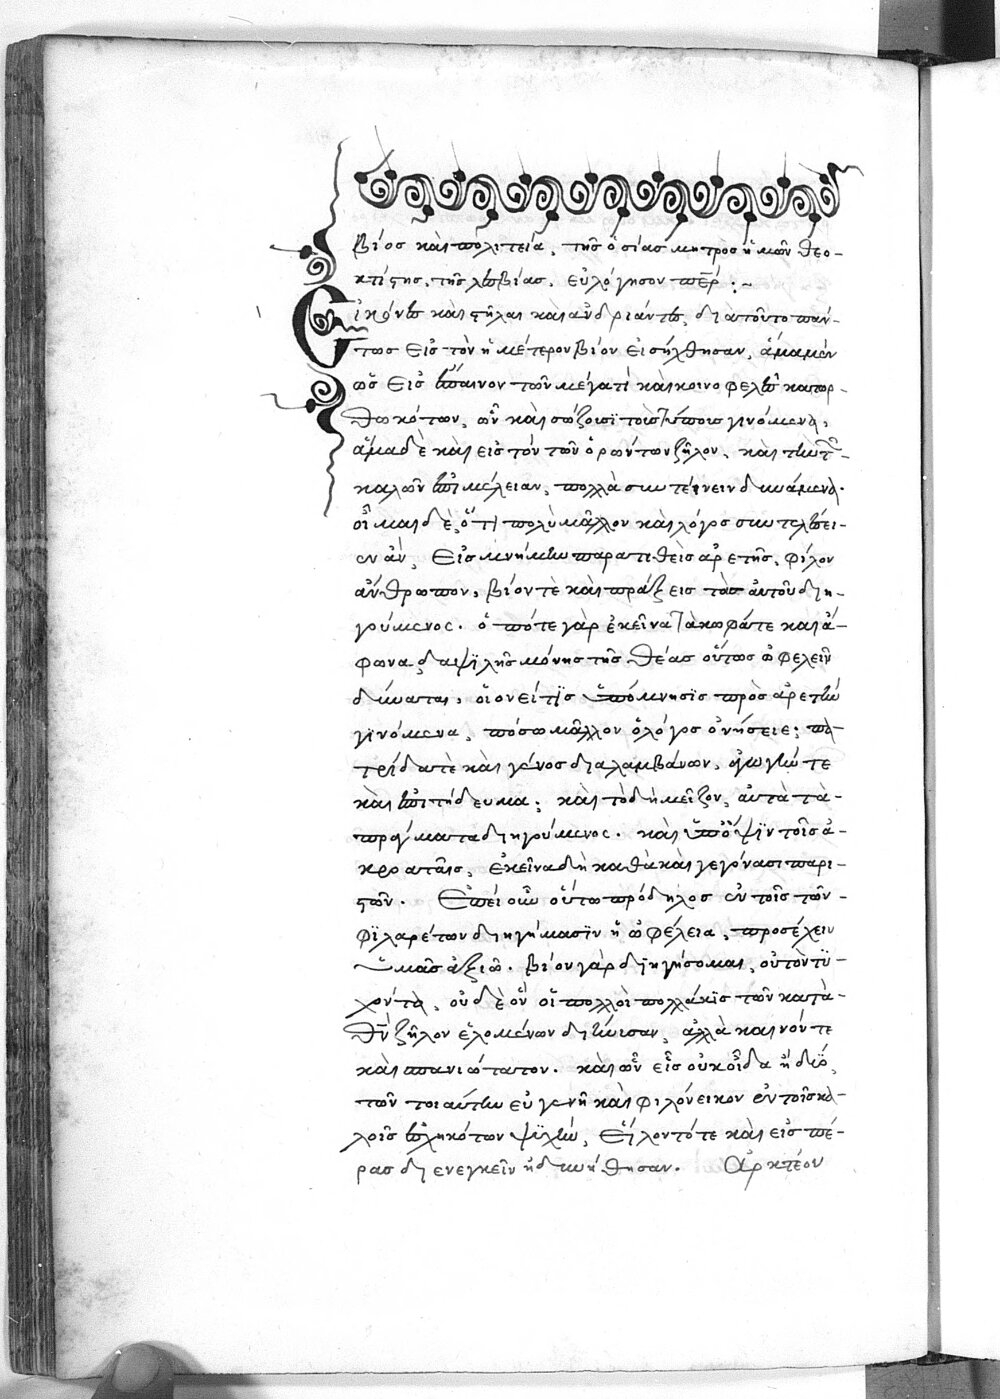 Βίος καὶ πολιτεία, τῆς ὁσίας μητρὸς ἡμῶν Θεο-
κτίστης, τῆς λεσβίας. εὐλόγησον πάτερ :~
Εἰκόνες καὶ στῆλαι καὶ ἀνδριάντες, διὰ τοῦτο πάν-
τως εἰς τὸν ἡμέτερον βίον εἰσήχθησαν, ἅμα μὲν
ὡς εἰς ἔπαινον τῶν μέγα τι καὶ κοινοφελὲς κατωρ-
θωκότων, ὧν καὶ σώζουσι τοὺς τύπους γινόμεναι,
ἅμα δὲ καὶ εἰς τὸν τῶν ὁρώντων ζῆλον, καὶ τὴν τῶν
καλῶν ἐπιμέλειαν, πολλὰ συντείνειν δυνάμεναι.
οἶμαι δὲ, ὅτι πολὺ μᾶλλον καὶ λόγος συντελέσει-
εν ἂν, εἰς μνήμην παρατιθεὶς ἀρετῆς, φίλον
ἄνθρωπον, βίον τὲ καὶ πράξεις τὰς αὐτοῦ διη-
γούμενος. ὁπότε γὰρ ἐκεῖνα τὰ κωφά τε καὶ ἄ-
φωνα διὰ ψιλῆς μόνης τῆς θέας οὕτως ὠφελεῖν
δύναται, οἱονεί τις ὑπόμνησις πρὸς ἀρετὴν
γινόμενα, πόσω μᾶλλον ὁ λόγος ὀνήσειε; πα-
τρίδα τὲ καὶ γένος διαλαμβάνων, ἀγωγήν τε
καὶ ἐπιτήδευμα; καὶ τὸ δὴ μεῖζον, αὐτὰ τὰ
πράγματα διηγούμενος. καὶ ὑπ' ὄψιν τοῖς ἀ-
κροαταῖς, ἐκεῖνα δὴ καθὰ καὶ γεγόνασι παρι-
στῶν. Ἐπεὶ οὖν οὕτω πρόδηλος ἐν τοῖς τῶν
φιλαρέτων διηγήμασιν ἡ ὠφέλεια, προσέχειν
ὑμᾶς ἀξιῶ. βίον γὰρ διηγήσομαι, οὐ τὸν τυ-
χόντα, οὐδὲ ὃν οἱ πολλοὶ πολλάκις τῶν κατὰ
Θεὸν ζῆλον ἑλομένων διήνυσαν, ἀλλὰ καινόν τε
καὶ σπανιώτατον. καὶ ὃν εἷς οὐκ οἶδα ἢ δύο,
τῶν τοιαύτην εὐγενῆ καὶ φιλόνεικον ἐν τοῖς κα-
λοῖς ἐσχηκότων ψυχὴν, εἵλοντό τε καὶ εἰς πέ-
ρας διενεγκεῖν ἠδυνήθησαν. Ἀρκτέον